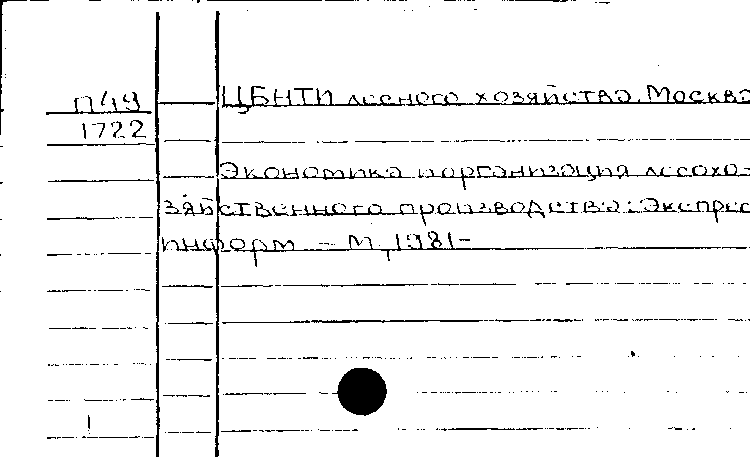 П49
1722
ЦБНТИ лесного хозяйства. Москва
Экономика и организация лесохо-
зяйственного производства: Экспрес
информ – М, 1981-